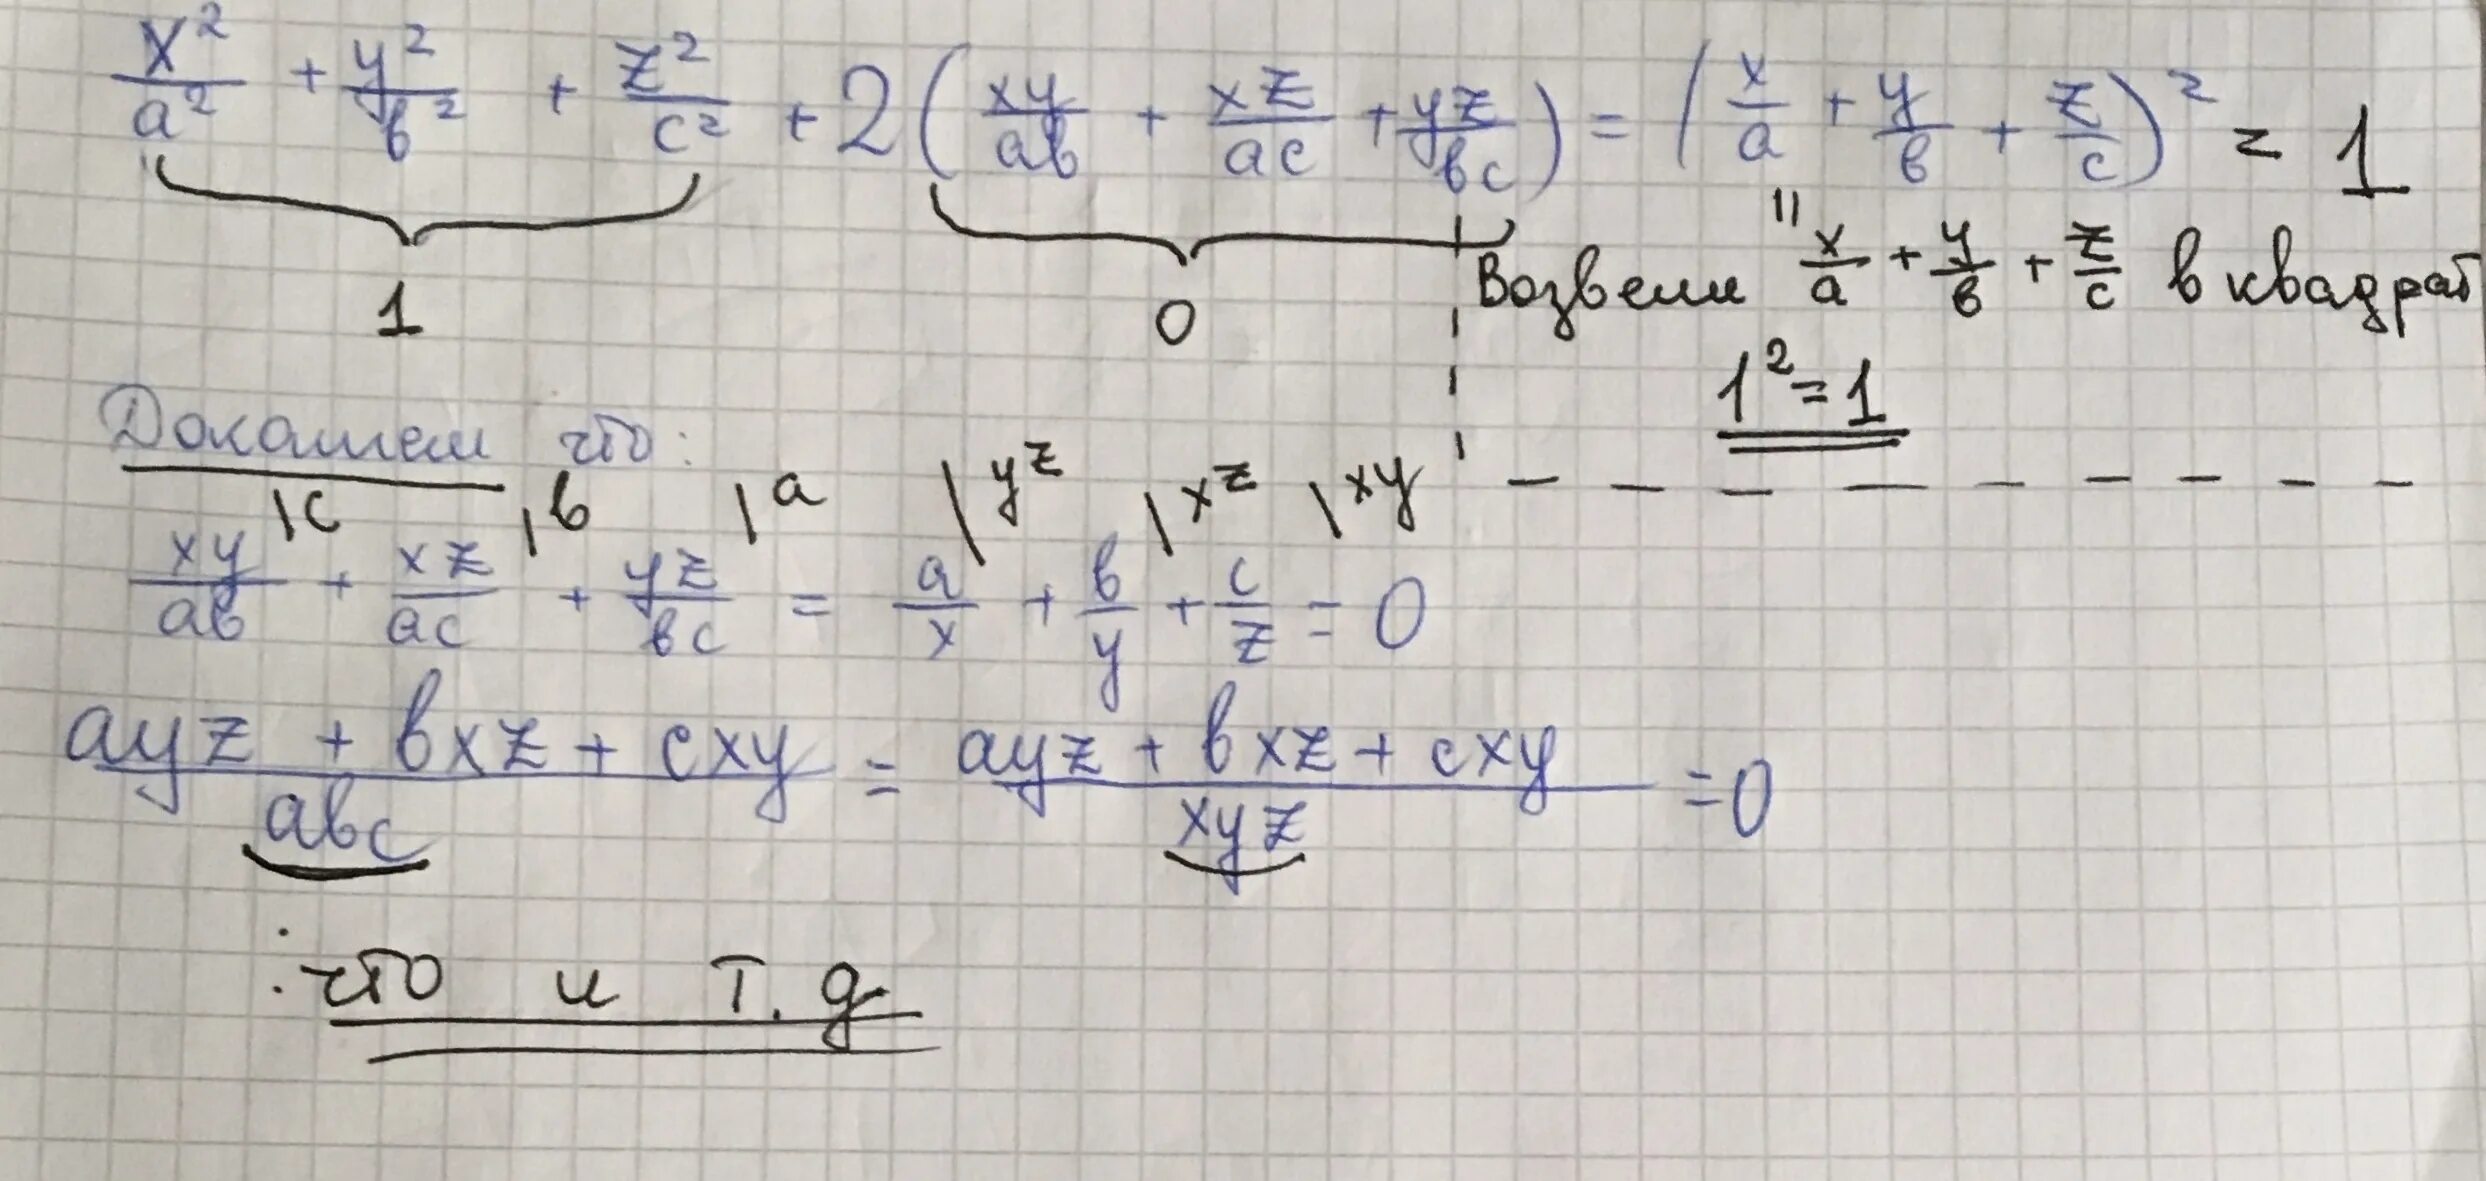 x²/a² + y²/в² + z²/c² + 2(xy/aв + xz/ac + yz/вc) = (x/a + y/в + z/c)² = 1
1
0
Возвели "x/a + y/в + z/c в квадрат
1² = 1
Докажем что:
\c \в \a \yz \xz \xy
xy/aв + xz/ac + yz/вc = a/x + в/y + c/z = 0
ayz + вxz + cxy / aвc = ayz + вxz + cxy / xyz = 0
:что и т.д